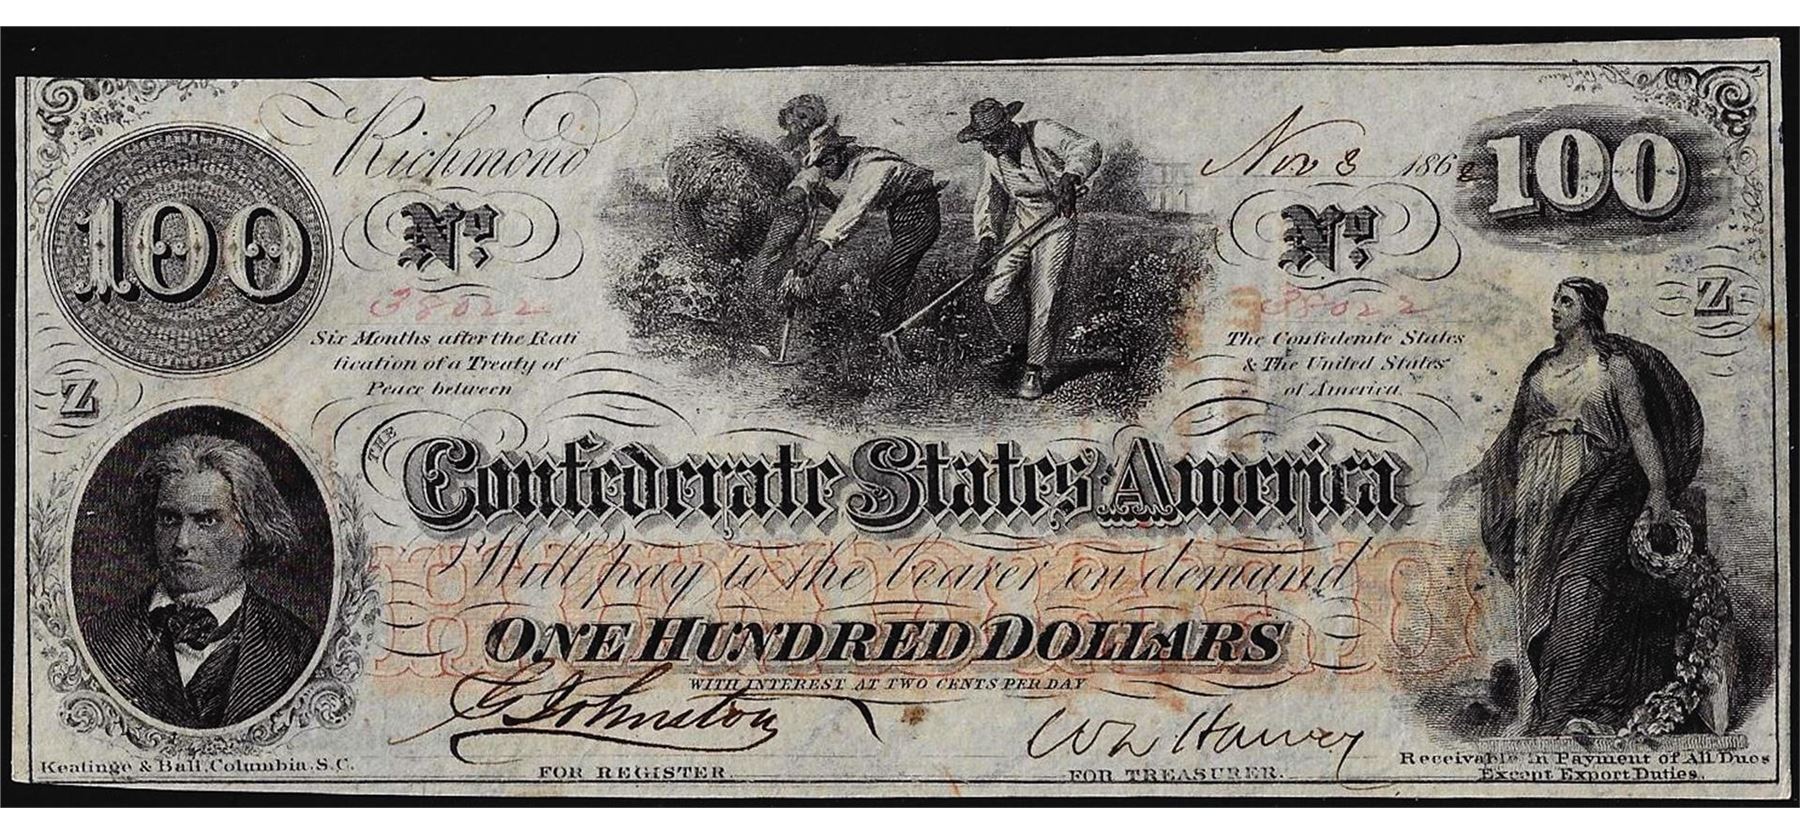 Richmond Nov 8 1862
100 100
No. No.
38022 38022
Six Months after the Rati
fication of a Treaty of
Peace between
The Confederate States
& The United States
of America.
Z Z
THE
Confederate States America
Will pay to the bearer on demand
HUNDRED
ONE HUNDRED DOLLARS
WITH INTEREST AT TWO CENTS PER DAY
Johnston
FOR REGISTER.
FOR TREASURER.
Keatinge & Ball, Columbia, S.C.
Receivable in Payment of All Dues
Except Export Duties.